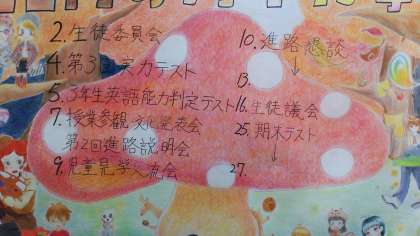 2. 生徒委員会
4. 第3回実力テスト
5. 3年生英語能力判定テスト
7. 授業参観 文化発表会
第2回進路説明会
9. 児童見学交流会
10. 進路懇談
↓
13.
16. 生徒議会
25. 期末テスト
↓
27.